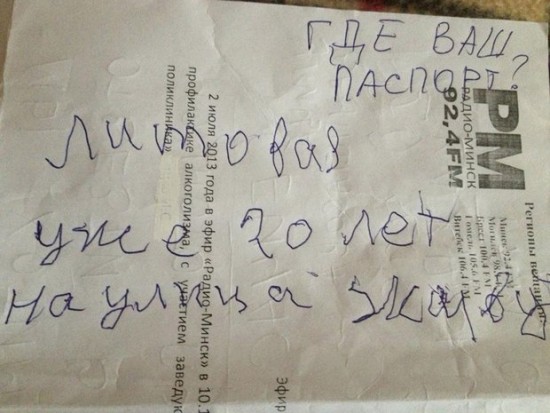 ГДЕ ВАШ
ПАСПОРТ?
уже 20 лет
на улица живу
РМ
РАДИО-МИНСК
92,4FM
Регионы вещания:
Минск 92.4 FM
Брест 100.4 FM
Гомель 105.6 FM
Витебск 106.4 FM
2 июля 2013 года в эфир «Радио-Минск» в 10.1
профилактике алкоголизма, с участием заведую
поликлиника»
Эфир